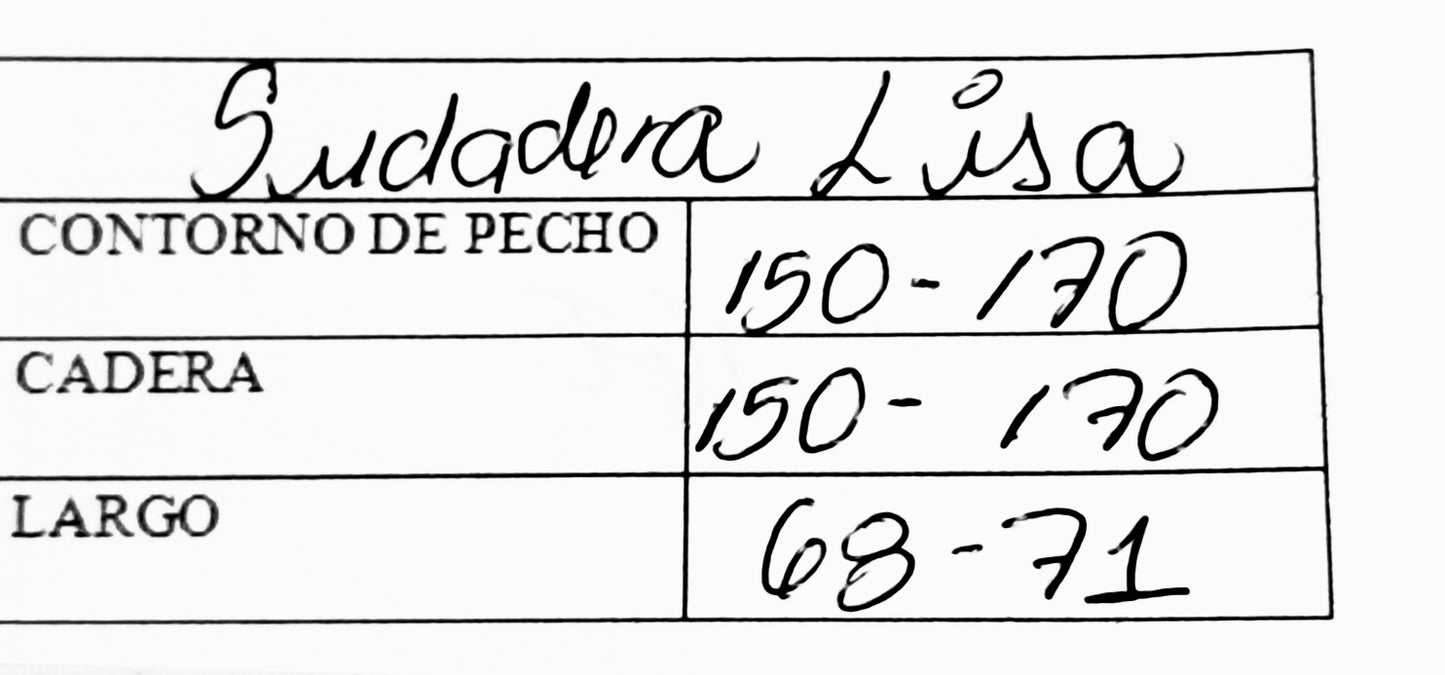 Sudadera Lisa
CONTORNO DE PECHO 150 - 170
CADERA 150 - 170
LARGO 68 - 71